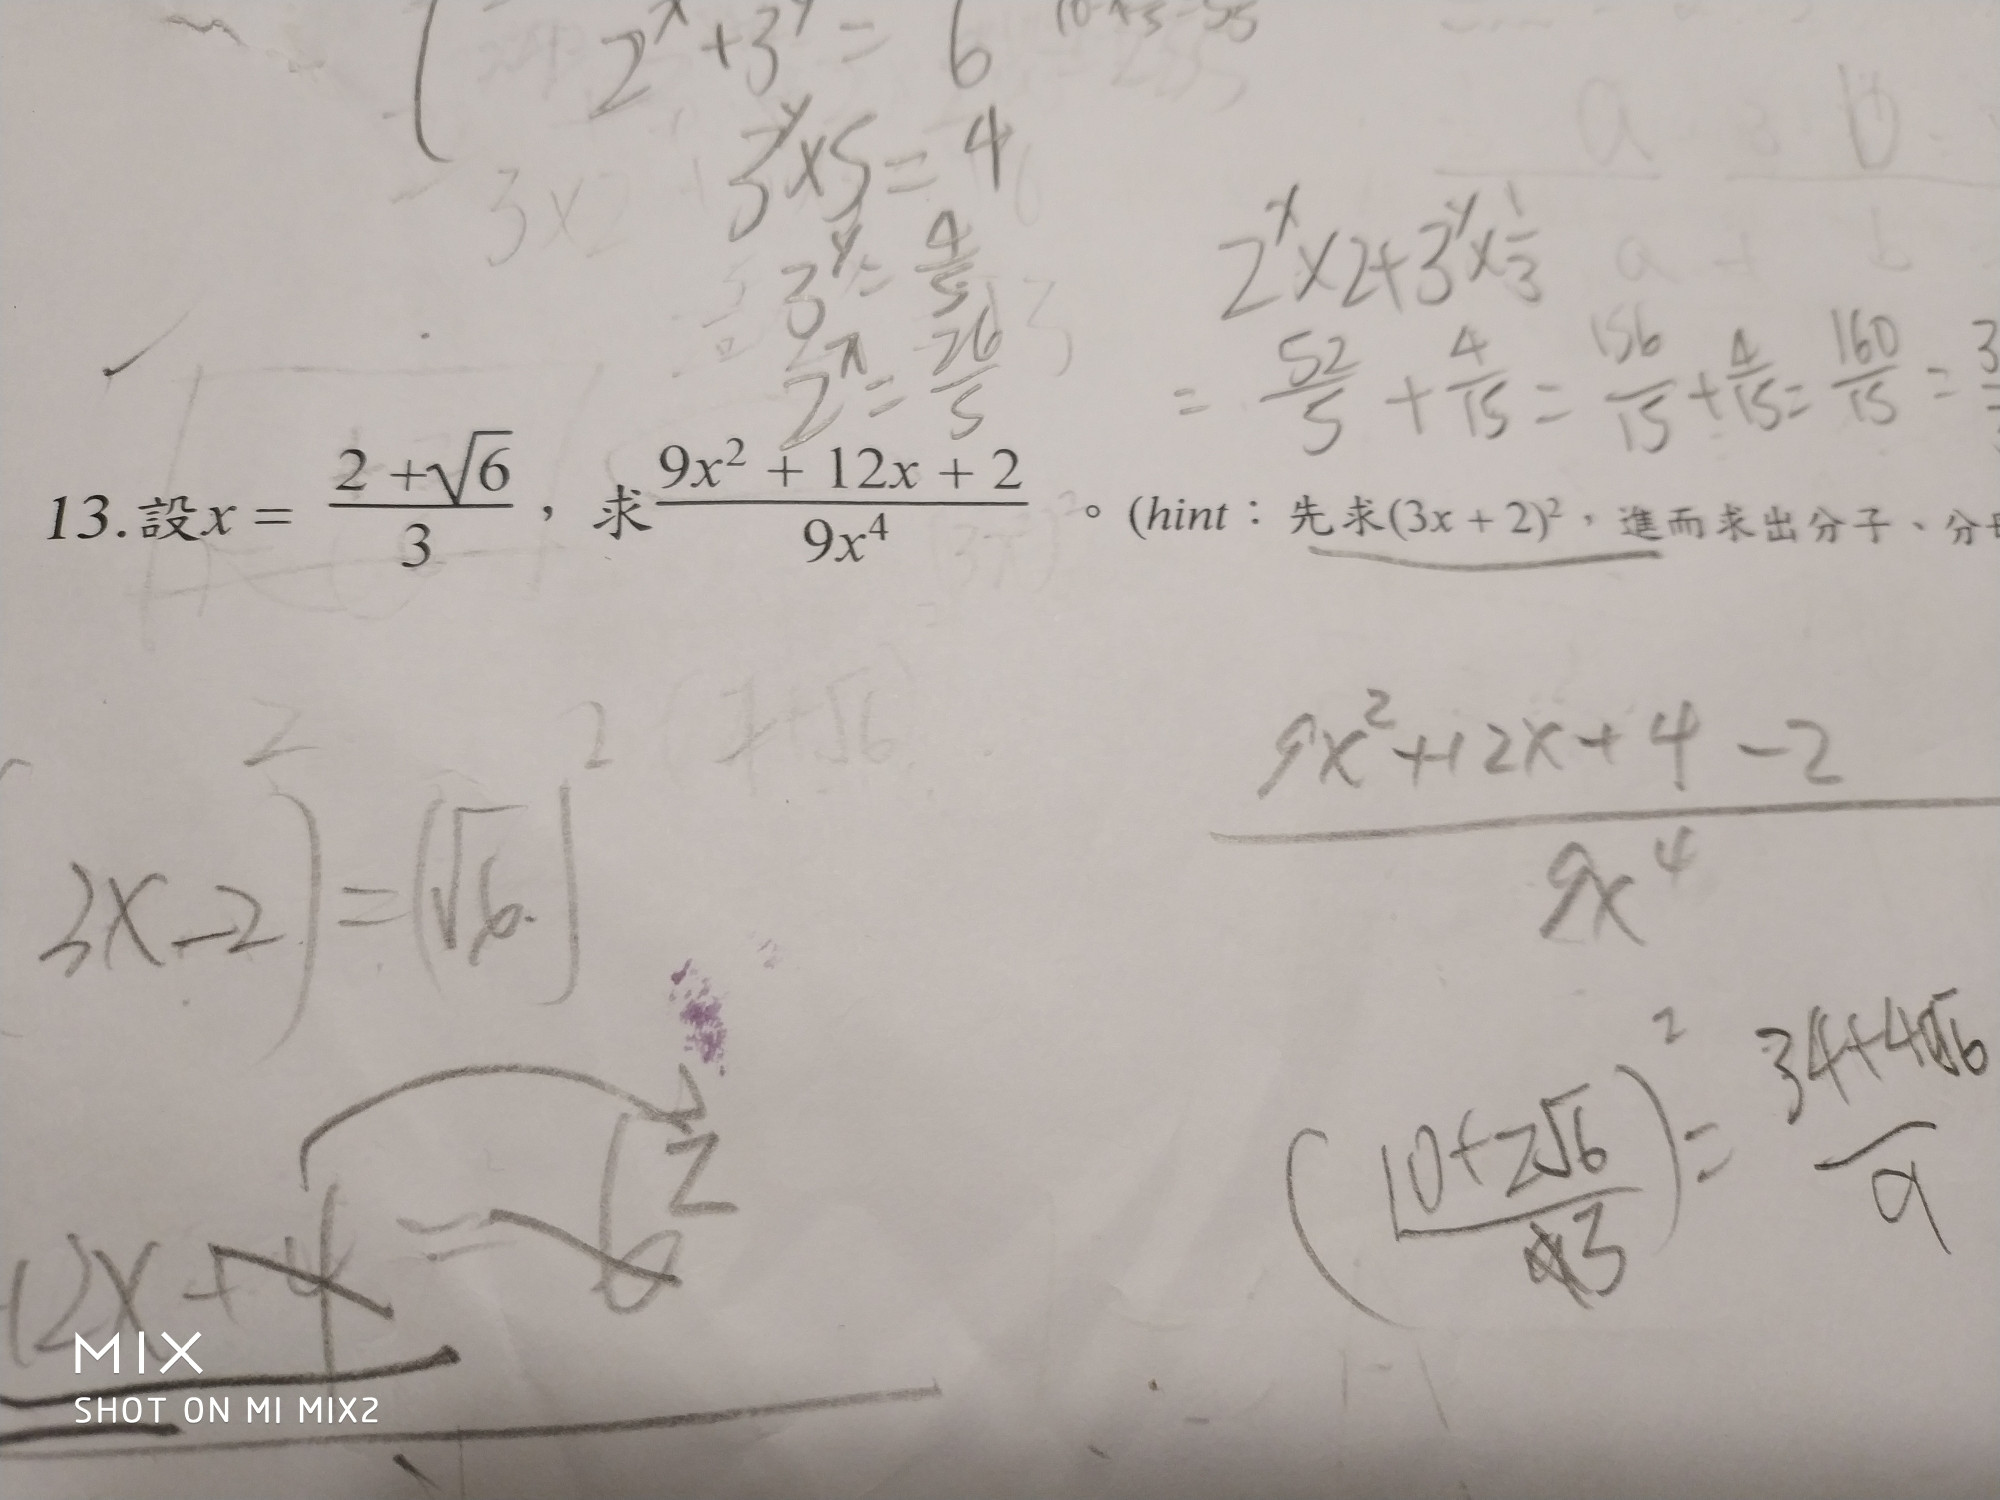 2^x + 3^y = 6
3^y × 5 = 4
3^y = 4/5
2^x = 26/5
2^x × 2 + 3^y × 1/3
= 52/5 + 4/15 = 156/15 + 4/15 = 160/15 =
13.設x = (2 + √6)/3，求 (9x² + 12x + 2)/(9x⁴)。(hint：先求(3x + 2)²，進而求出分子、分
(3x - 2)² = (√6)²
12x + 4 = 6 2
(9x² + 12x + 4 - 2)/(9x⁴)
((10 + 2√6)/3)² = (34 + 4√6)/9
MIX
SHOT ON MI MIX2